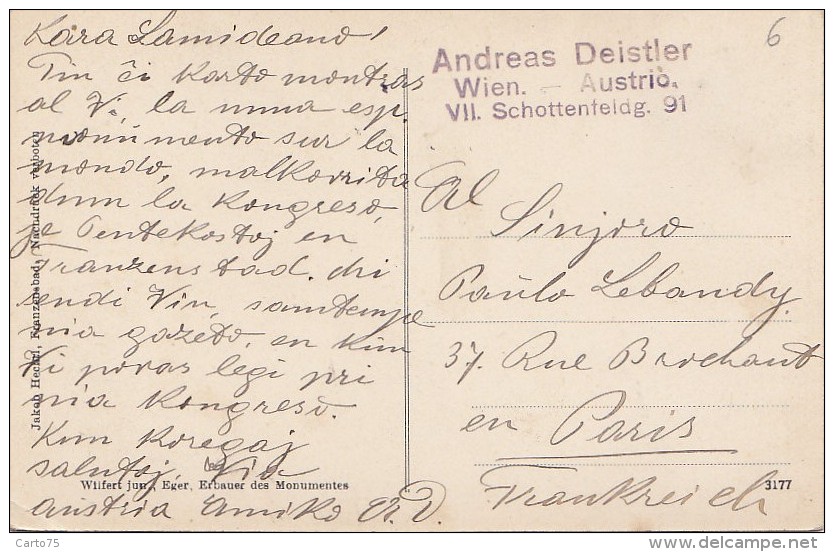 Kara Samideano!
Tiu ĉi karto montras
al Vi, la unua esp.
monumento sur la
mondo, malkovrita
dum la Kongreso,
je Pentekostoj en
Franzensbad.
sendi Vin, samtempe
nia gazeto, en kiu
Vi povas legi pri
nia Kongreso.
Kun Koregaj
salutoj Via
austria amiko A.D.
Jakob Hechtl, Franzensbad, Nachdruck verboten
Wilfert jun., Eger, Erbauer des Monumentes
6
Andreas Deistler
Wien. — Austrio.
VII. Schottenfeldg. 91
Al
Sinjoro
Paŭlo Lebandy.
37. Rue Brochant
en Paris
Frankreich
3177
Carto75
www.delcampe.net